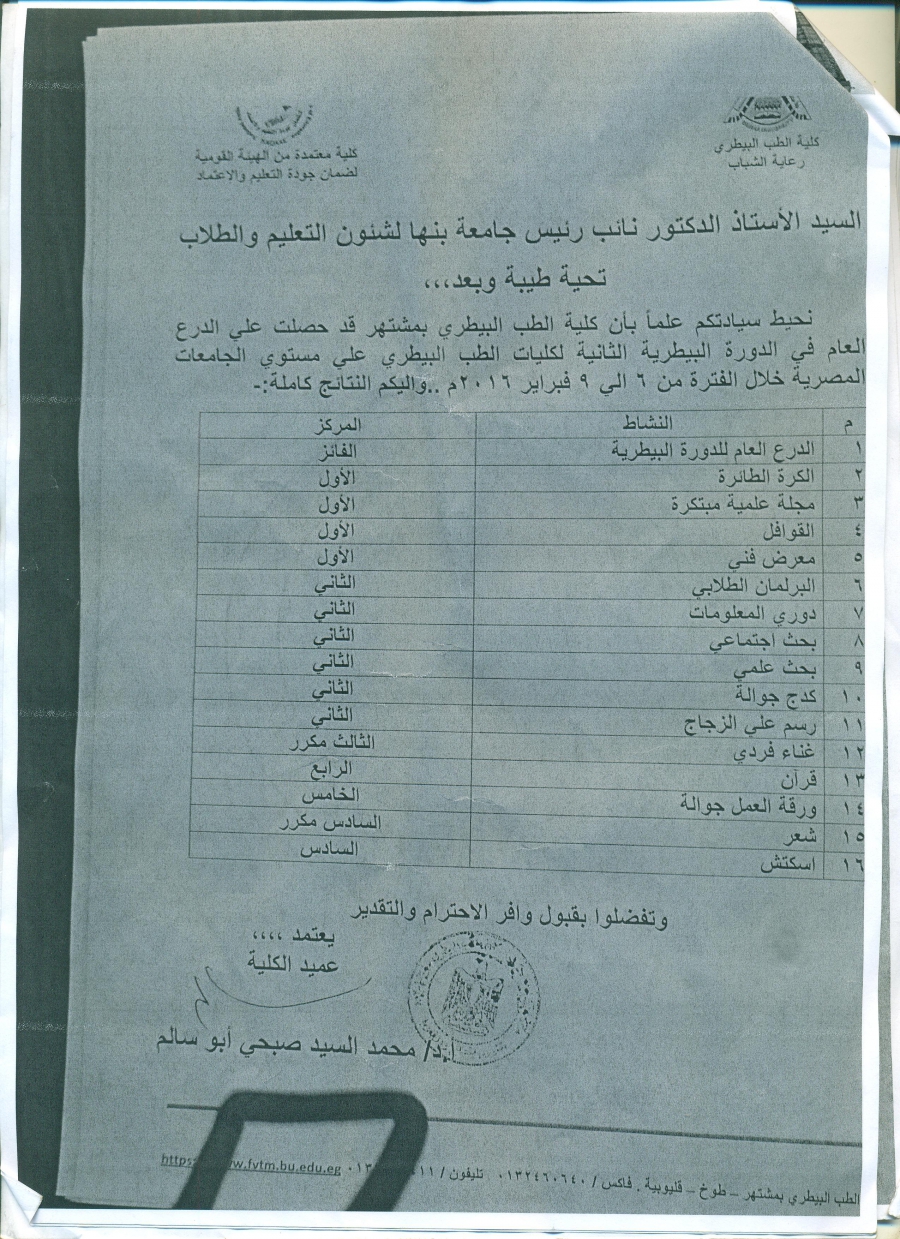 كلية الطب البيطري
رعاية الشباب
كلية معتمدة من الهيئة القومية
لضمان جودة التعليم والاعتماد
السيد الأستاذ الدكتور نائب رئيس جامعة بنها لشئون التعليم والطلاب
تحية طيبة وبعد،،،
نحيط سيادتكم علماً بأن كلية الطب البيطري بمشتهر قد حصلت علي الدرع
العام في الدورة البيطرية الثانية لكليات الطب البيطري علي مستوي الجامعات
المصرية خلال الفترة من ٦ الي ٩ فبراير ٢٠١٦م ..واليكم النتائج كاملة:-
م النشاط المركز
١ الدرع العام للدورة البيطرية الفائز
٢ الكرة الطائرة الأول
٣ مجلة علمية مبتكرة الأول
٤ القوافل الأول
٥ معرض فني الأول
٦ البرلمان الطلابي الثاني
٧ دوري المعلومات الثاني
٨ بحث اجتماعي الثاني
٩ بحث علمي الثاني
١٠ كدج جوالة الثاني
١١ رسم علي الزجاج الثاني
١٢ غناء فردي الثالث مكرر
١٣ قرآن الرابع
١٤ ورقة العمل جوالة الخامس
١٥ شعر السادس مكرر
١٦ اسكتش السادس
وتفضلوا بقبول وافر الاحترام والتقدير
يعتمد ،،،،
عميد الكلية
ا.د/ محمد السيد صبحي أبو سالم
الطب البيطري بمشتهر – طوخ – قليوبية . فاكس / ٠١٣٢٤٦٠٦٤٠ تليفون /